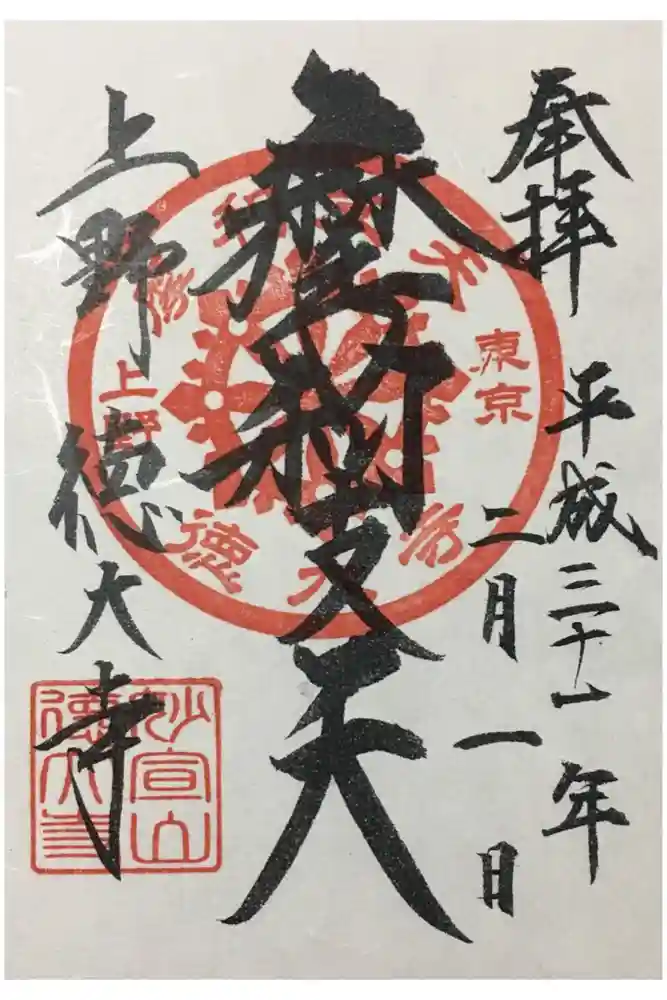 奉拝
平成三十一年
二月一日
摩利支天
上野
徳大寺
東京
上野
徳大寺
妙宣山
徳大寺